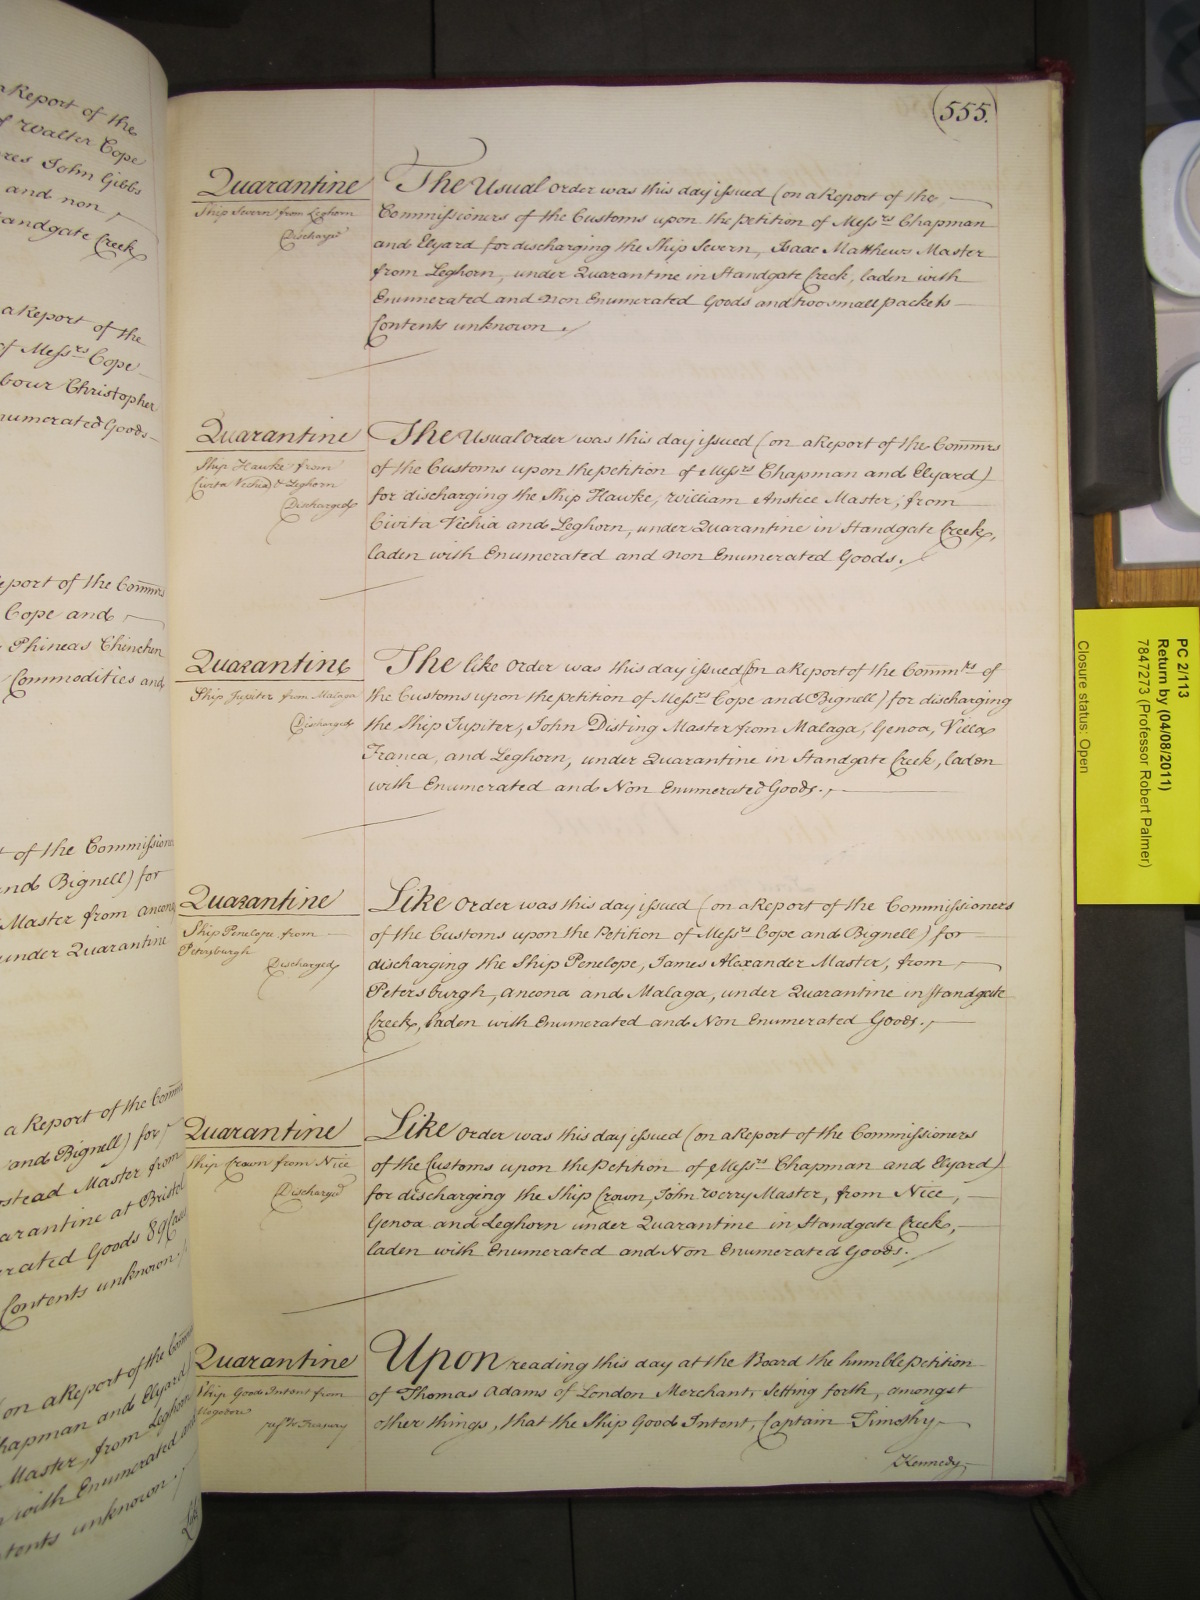 a Report of the
of Walter Cope
res John Gibbs
and non
andgate Creek
a Report of the
of Messrs Cope
bour Christopher
numerated Goods
eport of the Commrs
Cope and
Phineas Chinchen
Commodities and
t of the Commissioners
and Bignell) for
Master from Ancona
under Quarantine
a Report of the Commrs
and Bignell) for
ostead Master from
arantine at Bristol
erated Goods 89 Cases
Contents unknown
(on a Report of the Commrs
hapman and Elyard)
Master, from Leghorn
with Enumerated and
tents unknown.
Like
555.
Quarantine
Ship Severn from Leghorn
Discharged
The Usual Order was this day issued (on a Report of the
Commissioners of the Customs upon the petition of Messrs Chapman
and Elyard for discharging the Ship Severn, Isaac Matthews Master
from Leghorn, under Quarantine in Standgate Creek, laden with
Enumerated and non Enumerated Goods and two small packets
Contents unknown.
Quarantine
Ship Hawke from
Civita Vechia & Leghorn
Discharged
The Usual Order was this day issued (on a Report of the Commrs
of the Customs upon the petition of Messrs Chapman and Elyard)
for discharging the Ship Hawke, William Anstice Master, from
Civita Vechia and Leghorn, under Quarantine in Standgate Creek,
laden with Enumerated and non Enumerated Goods.
Quarantine
Ship Jupiter from Malaga
Discharged
The like Order was this day issued (on a Report of the Commrs of
the Customs upon the petition of Messrs Cope and Bignell) for discharging
the Ship Jupiter, John Disting Master from Malaga, Genoa, Villa
Franca, and Leghorn, under Quarantine in Standgate Creek, laden
with Enumerated and Non Enumerated Goods.
Quarantine
Ship Penelope from
Petersburgh
Discharged
Like Order was this day issued (on a Report of the Commissioners
of the Customs upon the Petition of Messrs Cope and Bignell) for
discharging the Ship Penelope, James Alexander Master, from
Petersburgh, Ancona and Malaga, under Quarantine in Standgate
Creek, laden with Enumerated and Non Enumerated Goods.
Quarantine
Ship Crown from Nice
Discharged
Like Order was this day issued (on a Report of the Commissioners
of the Customs upon the Petition of Messrs Chapman and Elyard)
for discharging the Ship Crown, John Werry Master, from Nice,
Genoa and Leghorn under Quarantine in Standgate Creek,
laden with Enumerated and Non Enumerated Goods.
Quarantine
Ship Good Intent from
Mogodore
refd to Treasury
Upon reading this day at the Board the humble petition
of Thomas Adams of London Merchant, setting forth, amongst
other things, that the Ship Good Intent, Captain Timothy
Kennedy,
PC 2/113
Return by (04/08/2011)
7847273 (Professor Robert Palmer)
Closure status: Open